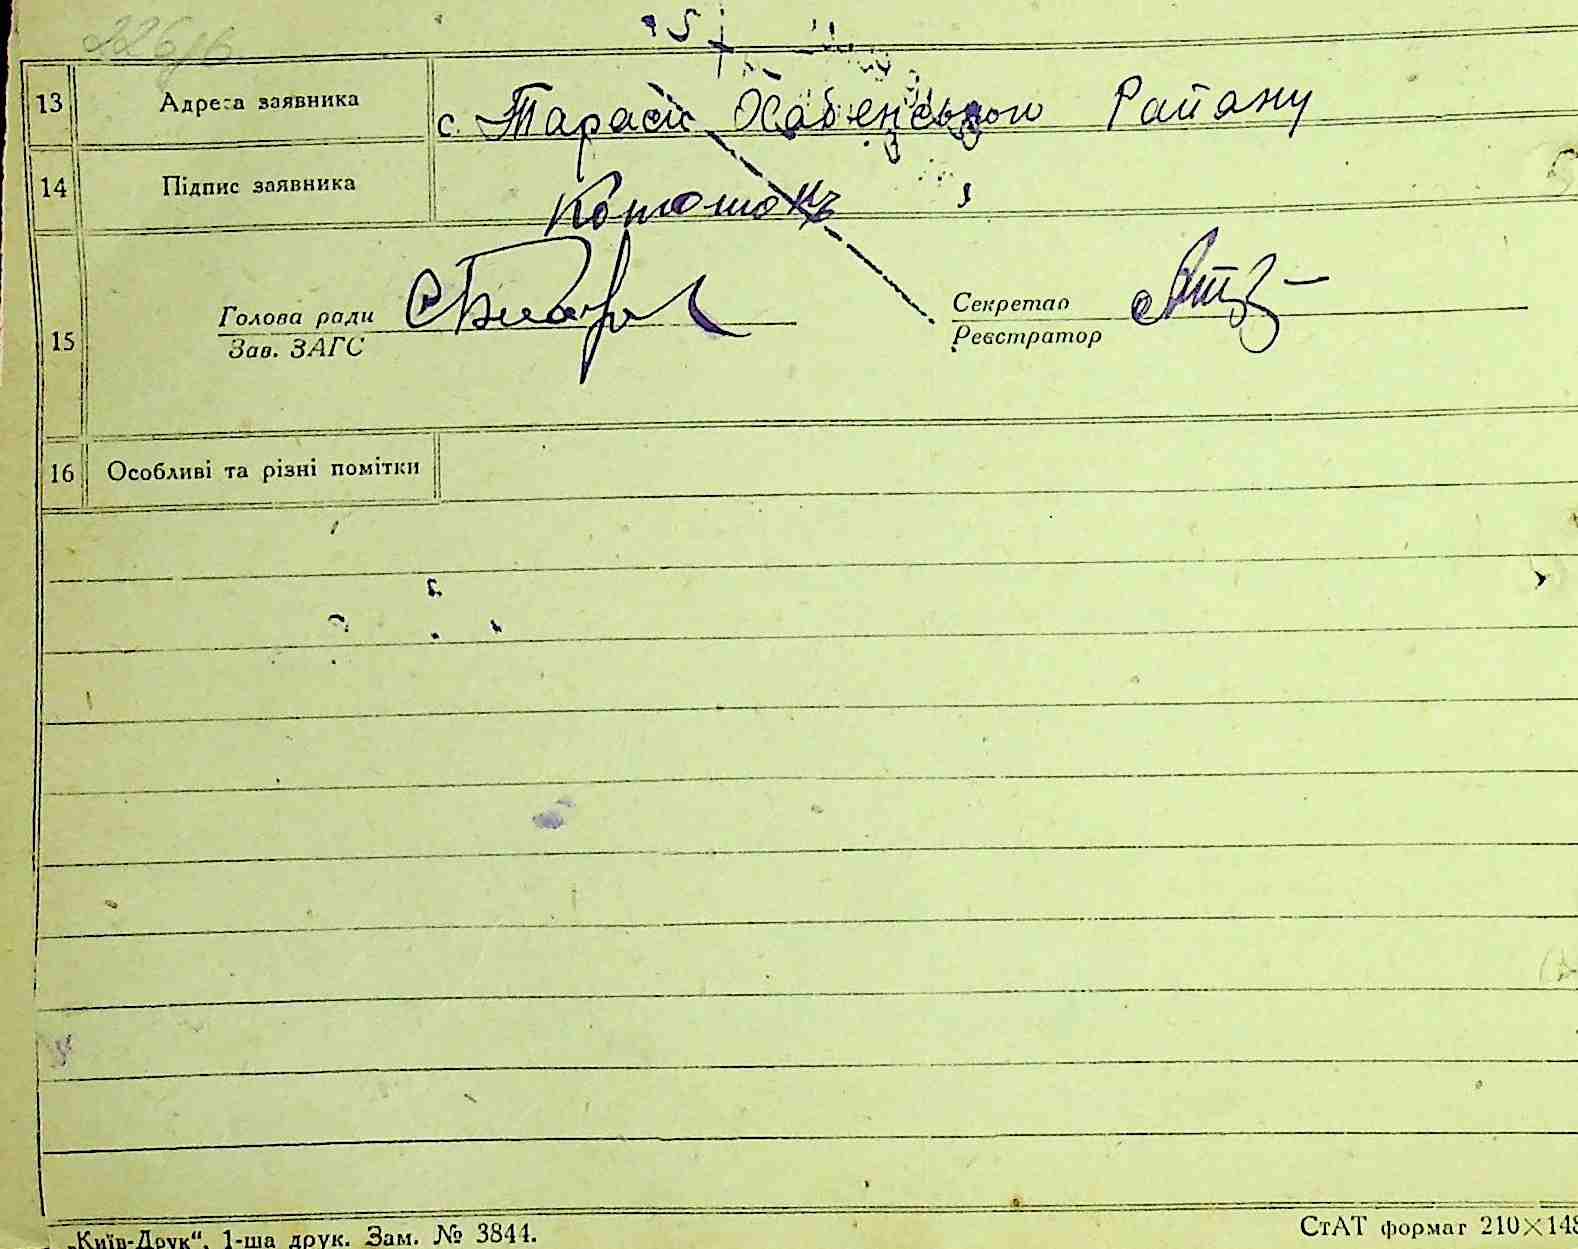 226/б
13 Адреса заявника с. Тараси Хабенського Району
14 Підпис заявника
15 Голова ради Секретар
Зав. ЗАГС Реєстратор
16 Особливі та різні помітки
„Київ-Друк“, 1-ша друк. Зам. № 3844. СтАТ формат 210×148